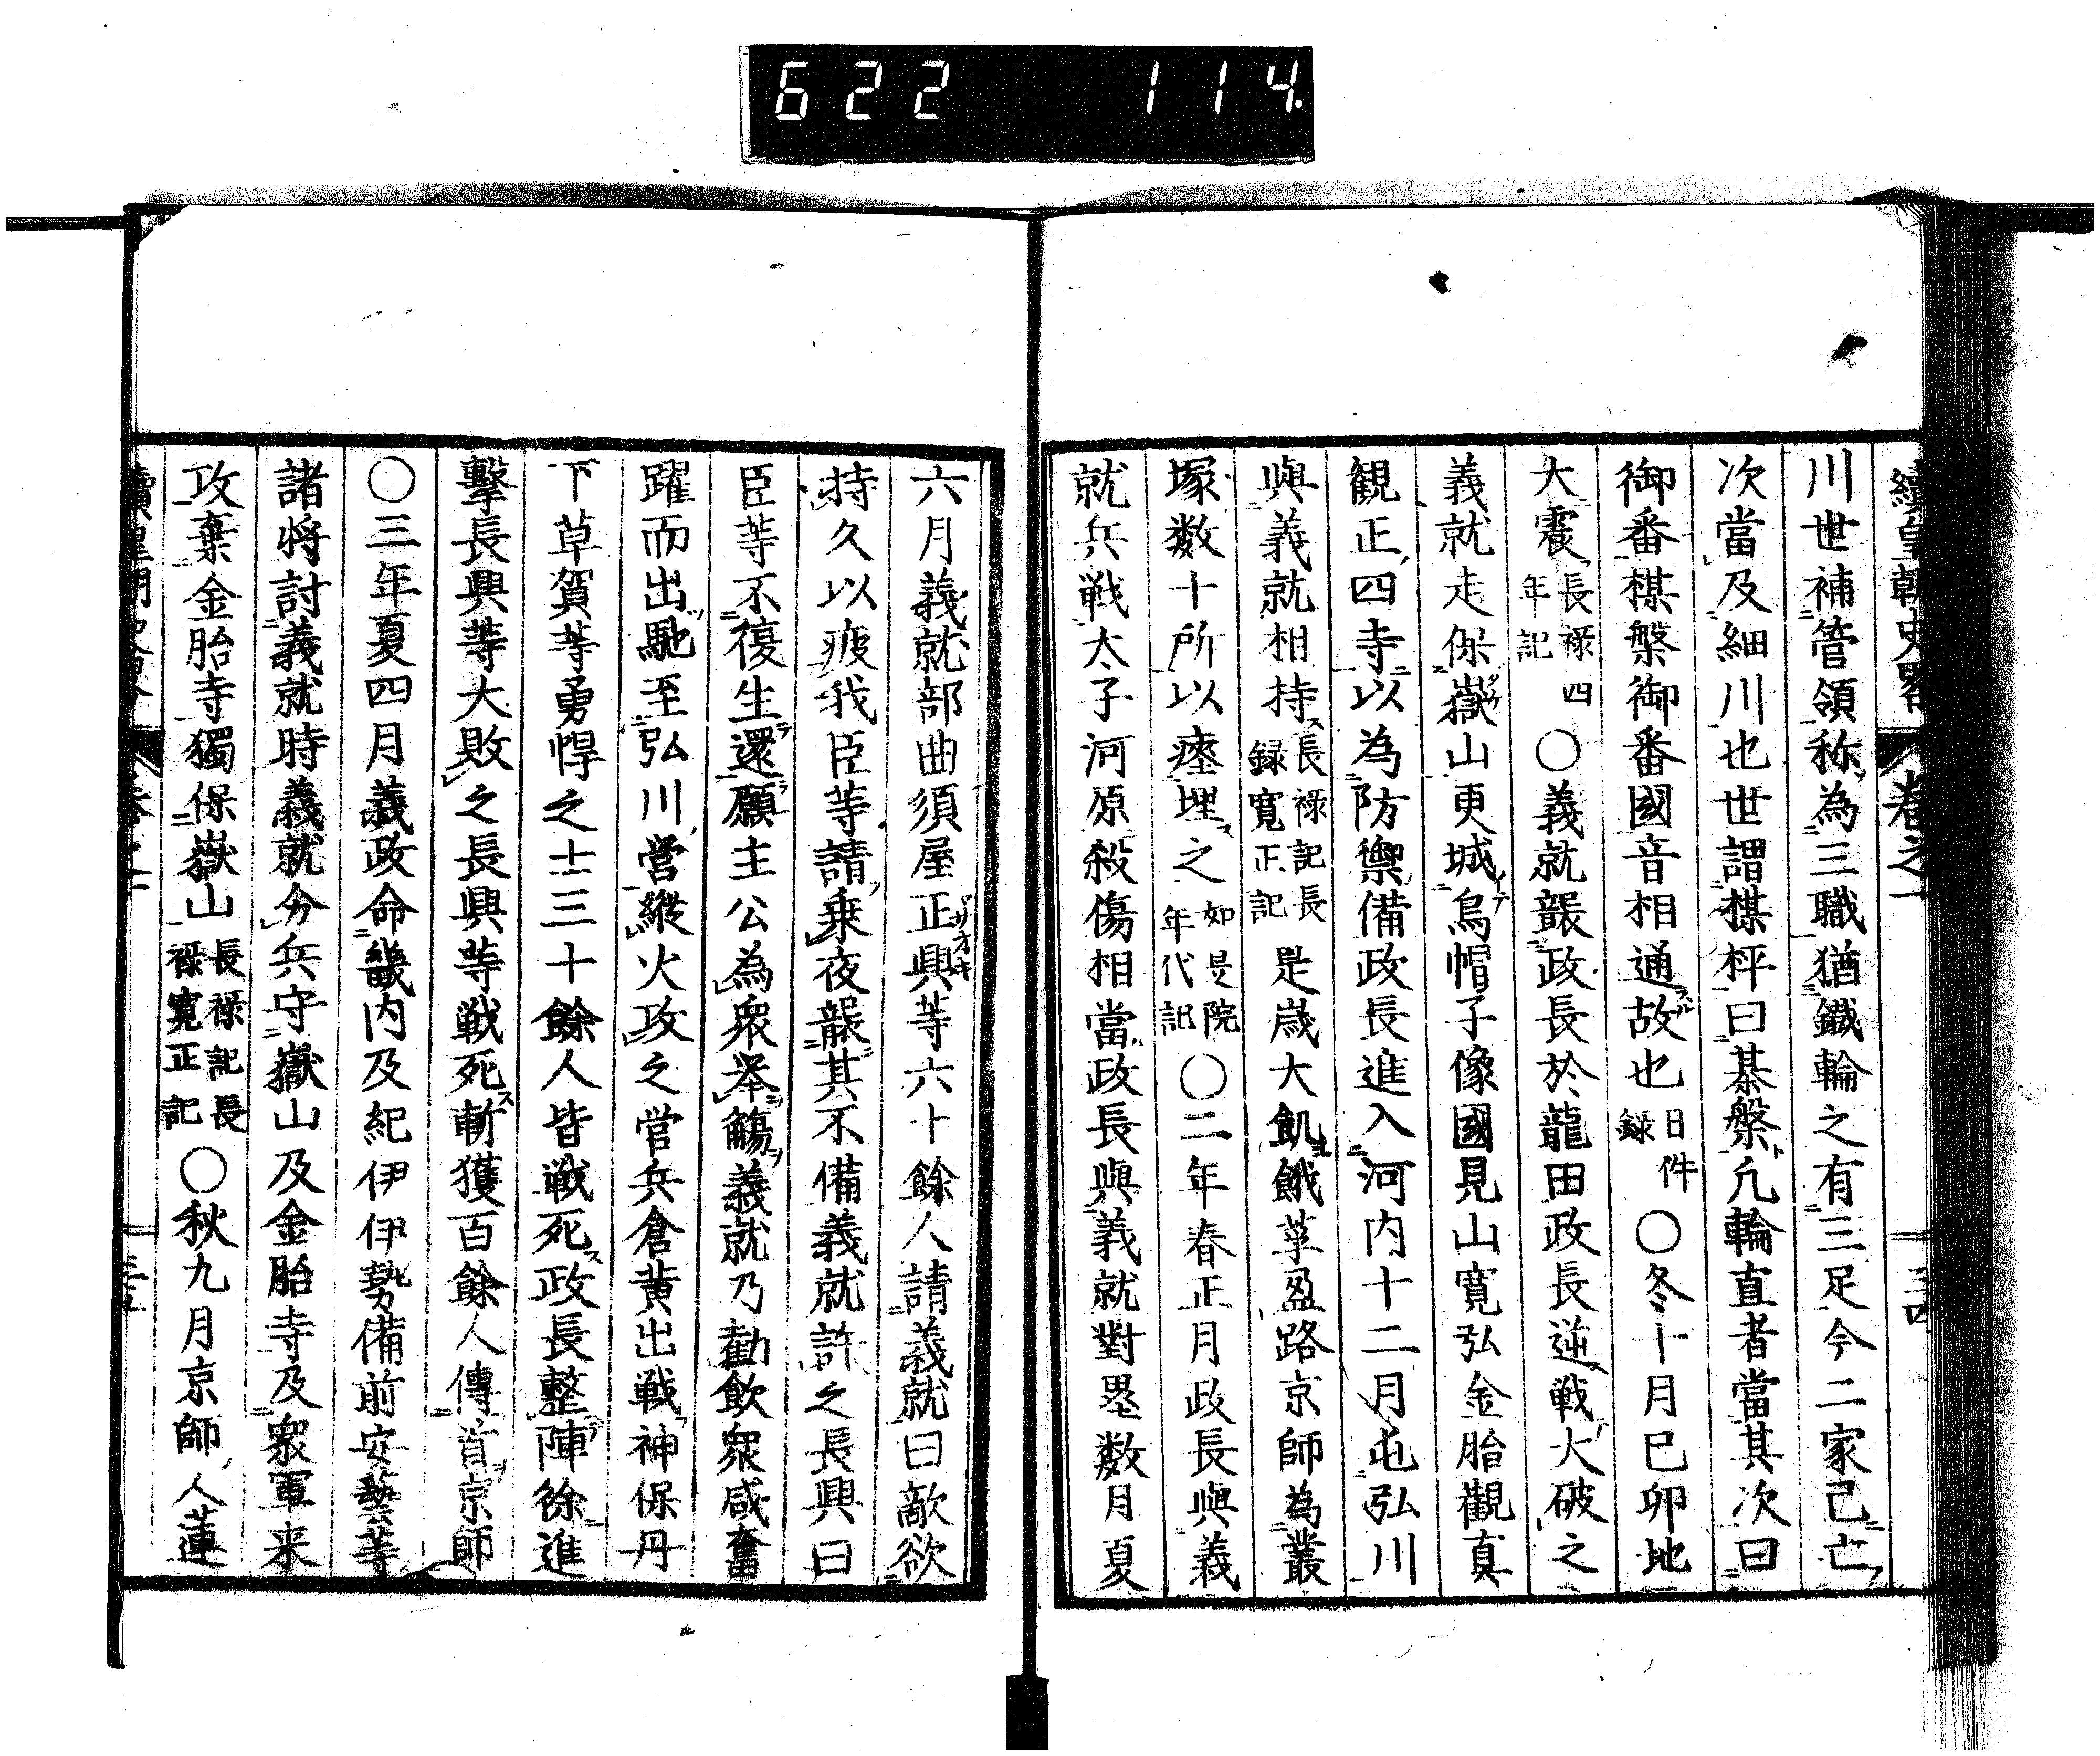 622 114
續皇朝史略 卷之一 三十四
川世補管領称為三職猶鐵輪之有三足今二家已亡
次當及細川也世謂棋枰曰棊槃凢輪直者當其次曰
御番棋槃御番國音相通故也日件録○冬十月巳卯地
大震長禄四年記○義就襲政長於龍田政長逆戦大破之
義就走保嶽山更城烏帽子像國見山寛弘金胎觀真
観正四寺以為防禦備政長進入河内十二月屯弘川
與義就相持長禄記長録寛正記是歳大飢餓莩盈路京師為叢
塚数十所以瘞埋之如是院年代記○二年春正月政長與義
就兵戦太子河原殺傷相當政長與義就對塁数月夏
六月義就部曲須屋正興等六十餘人請義就曰敵欲
持久以疲我臣等請乗夜襲其不備義就許之長興曰
臣等不復生還願主公為衆举觴義就乃勸飲衆咸奮
躍而出馳至弘川営縦火攻之営兵倉黄出戦神保丹
下草賀等勇悍之士三十餘人皆戦死政長整陣徐進
擊長興等大敗之長興等戦死斬獲百餘人傳首京師
○三年夏四月義政命畿内及紀伊伊勢備前安藝等
諸将討義就時義就分兵守嶽山及金胎寺及衆軍来
攻棄金胎寺獨保嶽山長禄記長禄寛正記○秋九月京師人蓮